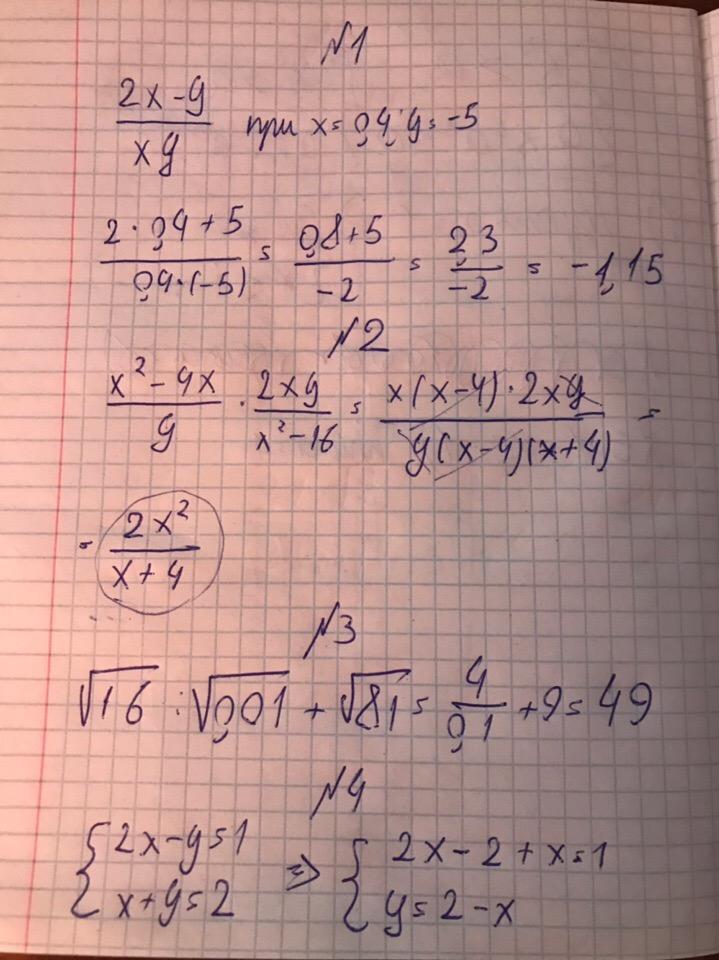 №1
(2x-y)/(xy) при x=0,4; y=-5
(2·0,4+5)/(0,4·(-5)) = (0,8+5)/(-2) = (2,3)/(-2) = -1,15
№2
(x²-4x)/y · (2xy)/(x²-16) = (x(x-4)·2xy)/(y(x-4)(x+4)) =
= (2x²)/(x+4)
№3
√16 : √0,01 + √81 = 4/0,1 + 9 = 49
№4
{2x-y=1 => {2x-2+x=1
{x+y=2 {y=2-x